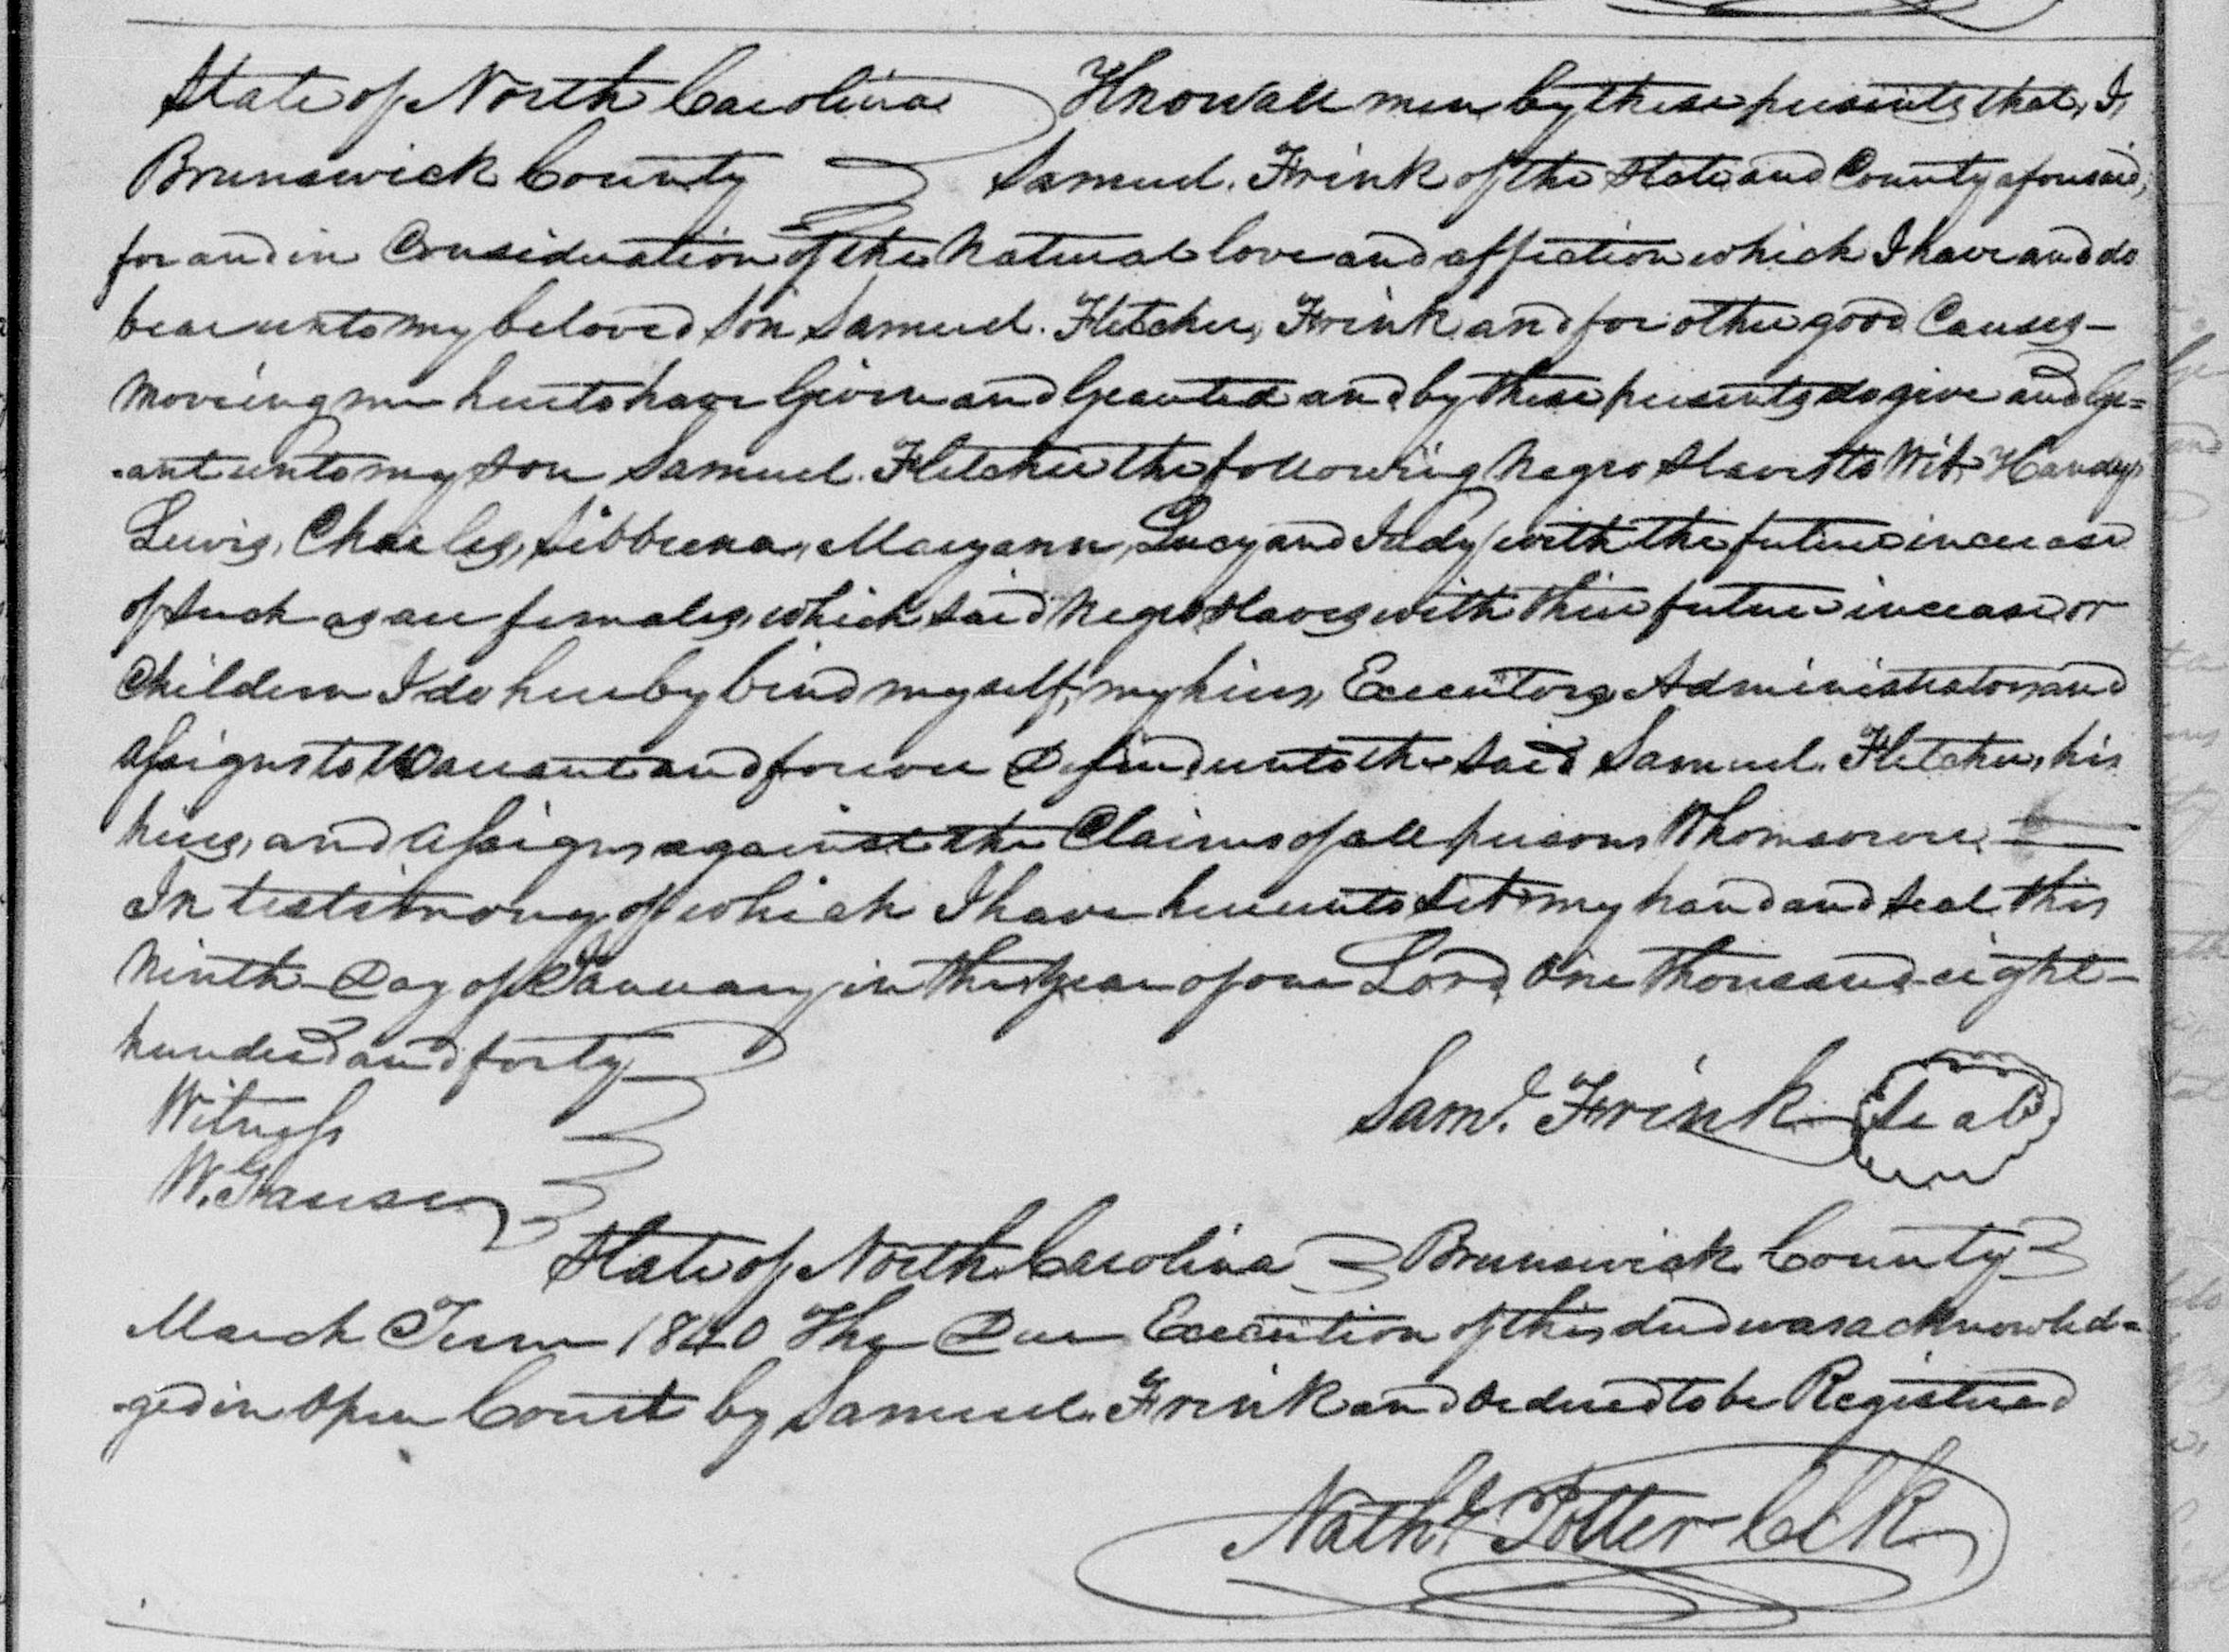 State of North Carolina Know all men by these presents that, I,
Brunswick County Samuel. Frink of the State and County aforesaid,
for and in Consideration of the Natural love and affection which I have and do
bear unto my beloved Son Samuel. Fletcher, Frink and for other good Causes –
Moveing me hereto have Given and Granted and by these presents do give and Gr=
-ant unto my Son Samuel. Fletcher the following Negro Slaves to Wit, Handy,
Lewis, Charles, Sibbrena, Maryann, Lucy and Judy with the future increase
of Such as are females, which said Negro Slaves with their future increase or
Children I do hereby bind myself, my heirs, Executors Administrators and
assigns to Warrant and forever Defend unto the Said Samuel. Fletcher, his
heirs, and assigns against the Claims of all persons Whomsoever.
In testimony of which I have hereunto Set my hand and Seal this
Ninth Day of January in the Year of our Lord One thousand eight –
hundred and forty
Witness
Sam.l Frink Seal
W. Gause
State of North Carolina Brunswick County
March Term 1840 The Due Execution of this deed was acknowled=
-ged in Open Court by Samuel. Frink and Ordered to be Registered
Nath.l Potter Clk